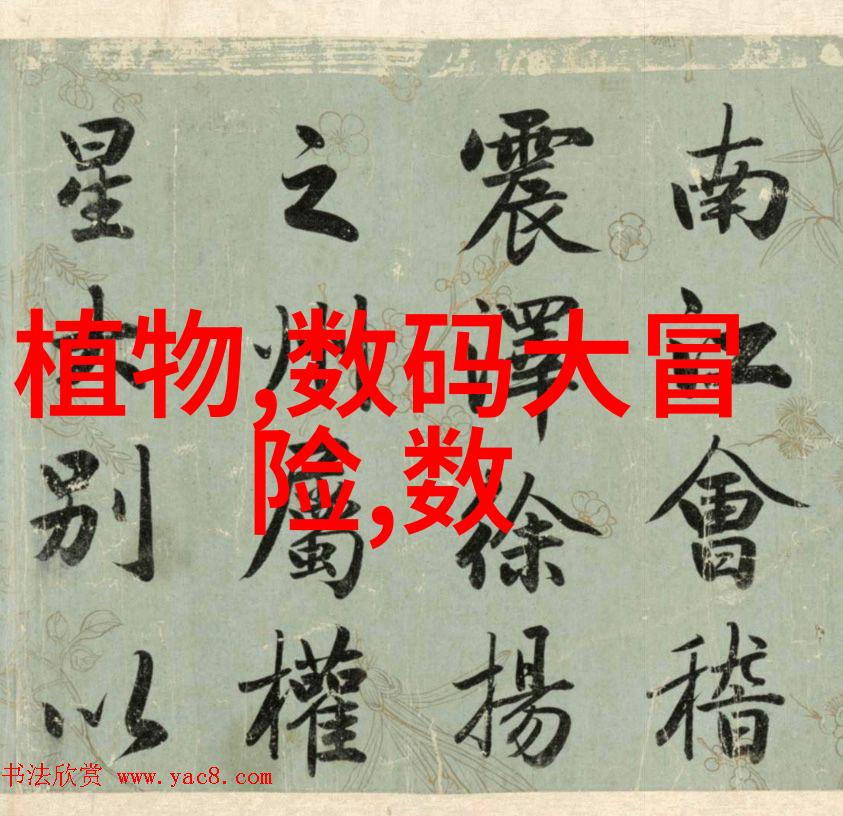 南江會稽
震澤徐揚
之州屬權
星別以
植物,数码大冒
险,数
书法欣赏 www.yac8.com